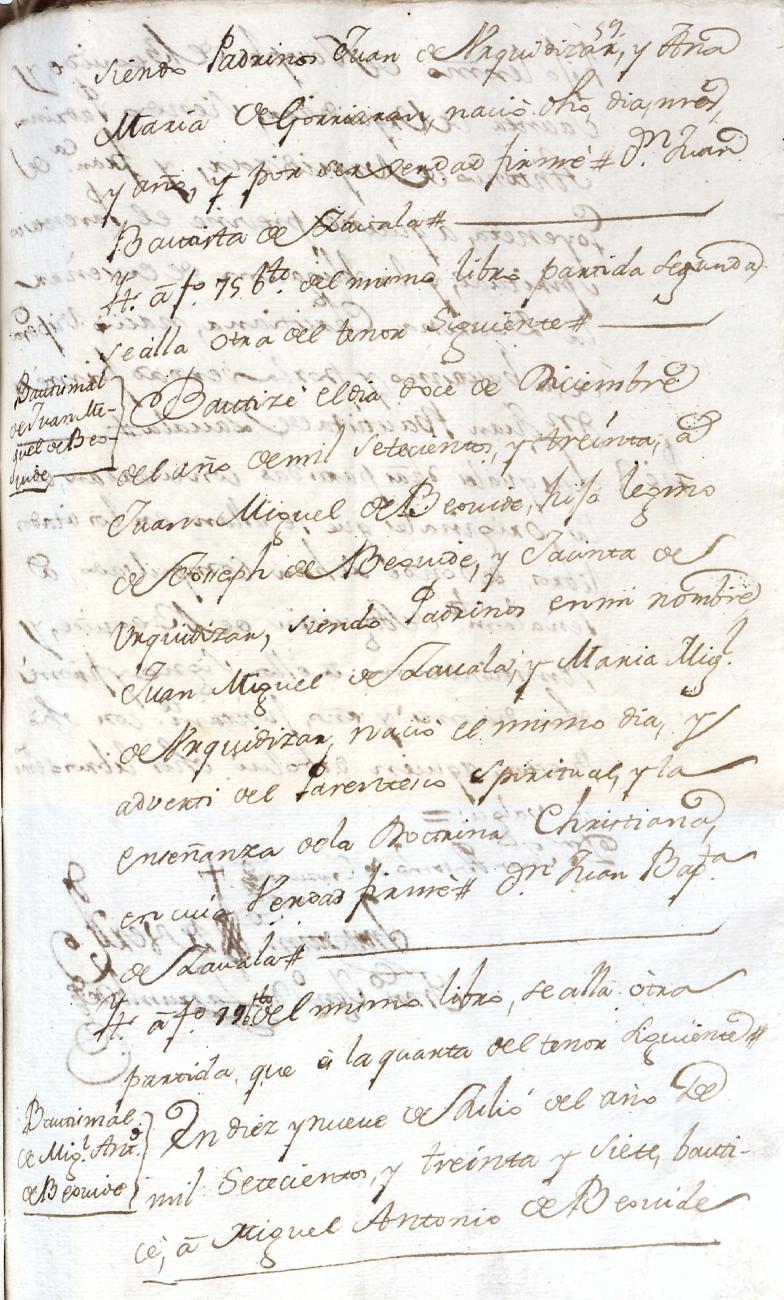 59
siendo Padrinos Juan de Urquidizar, y Ana
Maria de Gorriaran, naciò dho, dia, mes,
y año, y por ser verdad firmè # Dn Juan
Bautista de Zavala #
Yt. â fo 75 bto del mismo libro partida segunda,
se alla otra del tenor siguiente #
Bautismal
de Juan Mi-
guel de Beo-
vide
Bautizè el dia doce de Diciembre
del año de mil setecientos, y treinta, â
Juan Miguel de Beovide, hijo legmo
de Joseph de Beovide, y Jacinta de
Urquidizar, siendo Padrinos en mi nombre
Juan Miguel de Zavala, y Maria Migl
de Urquidizar, naciò el mismo dia, y
adverti del Parentesco Spiritual, y la
enseñanza de la Doctrina Christiana,
en cuia verdad firmè # Dn Juan Bapta
de Zavala #
Yt. â fo bto del mismo libro, se alla otra
partida, que è la quarta del tenor siguiente #
Bautismal
de Migl Anto
de Beovide
En diez y nueve de Julio del año de
mil setecientos, y treinta y siete, bauti-
cè, â Miguel Antonio de Beovide